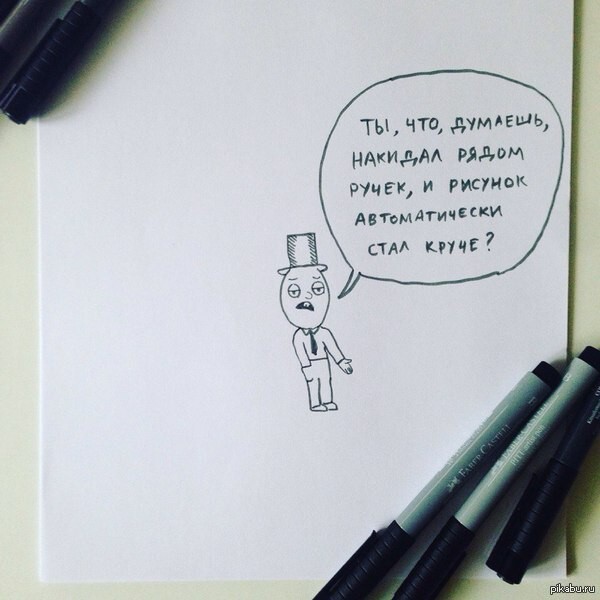 ТЫ, ЧТО, ДУМАЕШЬ,
НАКИДАЛ РЯДОМ
РУЧЕК, И РИСУНОК
АВТОМАТИЧЕСКИ
СТАЛ КРУЧЕ?
FABER CASTELL
pikabu.ru